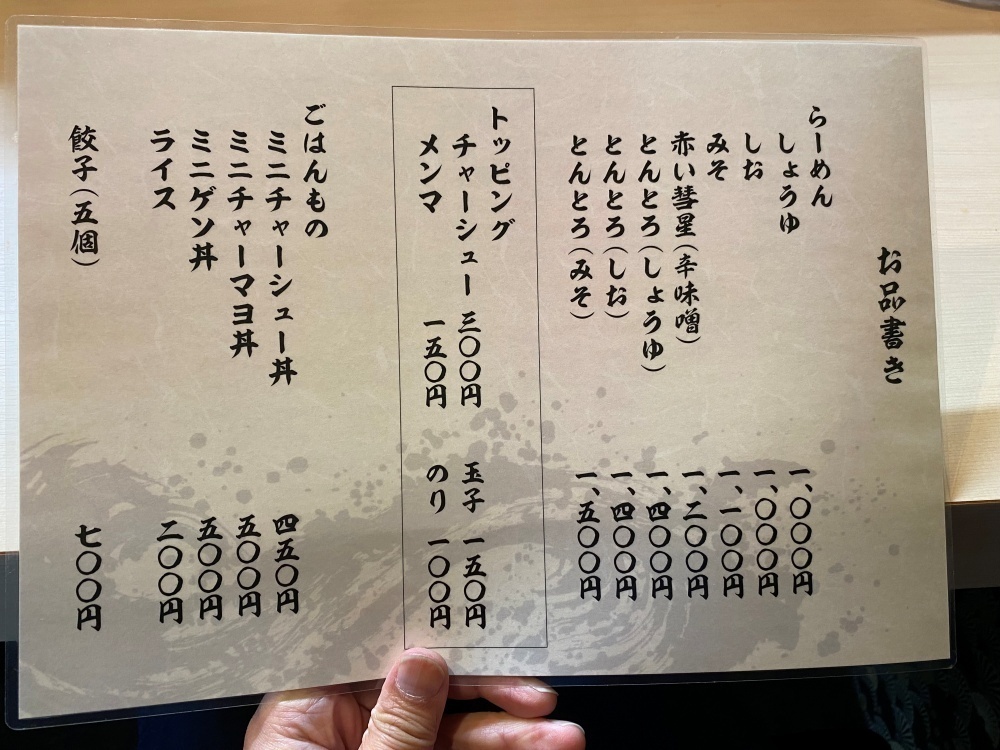 お品書き
らーめん
しょうゆ 一、〇〇〇円
しお 一、〇〇〇円
みそ 一、一〇〇円
赤い彗星(辛味噌) 一、二〇〇円
とんとろ(しょうゆ) 一、四〇〇円
とんとろ(しお) 一、四〇〇円
とんとろ(みそ) 一、五〇〇円
トッピング
チャーシュー 三〇〇円 玉子 一五〇円
メンマ 一五〇円 のり 一〇〇円
ごはんもの
ミニチャーシュー丼 四五〇円
ミニチャーマヨ丼 五〇〇円
ミニゲソ丼 五〇〇円
ライス 二〇〇円
餃子(五個) 七〇〇円